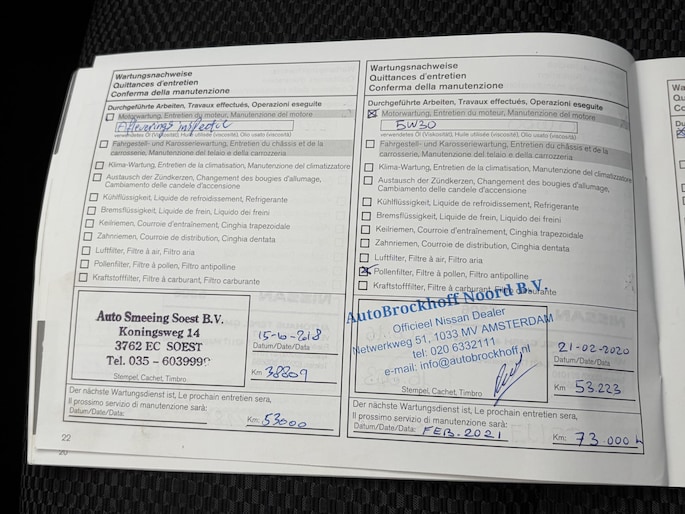 Wartungsnachweise
Quittances d'entretien
Conferma della manutenzione
Durchgeführte Arbeiten, Travaux effectués, Operazioni eseguite
Motorwartung, Entretien du moteur, Manutenzione del motore
Afleverings inspectie
verwendetes Öl (Viskosität), Huile utilisée (viscosité), Olio usato (viscosità)
Fahrgestell- und Karosseriewartung, Entretien du châssis et de la
carrosserie, Manutenzione del telaio e della carrozzeria
Klima-Wartung, Entretien de la climatisation, Manutenzione del climatizzatore
Austausch der Zündkerzen, Changement des bougies d'allumage,
Cambiamento delle candele d'accensione
Kühlflüssigkeit, Liquide de refroidissement, Refrigerante
Bremsflüssigkeit, Liquide de frein, Liquido dei freini
Keilriemen, Courroie d'entraînement, Cinghia trapezoidale
Zahnriemen, Courroie de distribution, Cinghia dentata
Luftfilter, Filtre à air, Filtro aria
Pollenfilter, Filtre à pollen, Filtro antipolline
Kraftstofffilter, Filtre à carburant, Filtro carburante
Auto Smeeing Soest B.V.
Koningsweg 14
3762 EC SOEST
Tel. 035 - 6039999
Stempel, Cachet, Timbro
15-10-2018
Datum/Date/Data:
Km 38809
Der nächste Wartungsdienst ist, Le prochain entretien sera,
Il prossimo servizio di manutenzione sarà:
Datum/Date/Data:
Km: 53000
22
Wartungsnachweise
Quittances d'entretien
Conferma della manutenzione
Durchgeführte Arbeiten, Travaux effectués, Operazioni eseguite
Motorwartung, Entretien du moteur, Manutenzione del motore
5W30
verwendetes Öl (Viskosität), Huile utilisée (viscosité), Olio usato (viscosità)
Fahrgestell- und Karosseriewartung, Entretien du châssis et de la
carrosserie, Manutenzione del telaio e della carrozzeria
Klima-Wartung, Entretien de la climatisation, Manutenzione del climatizzatore
Austausch der Zündkerzen, Changement des bougies d'allumage,
Cambiamento delle candele d'accensione
Kühlflüssigkeit, Liquide de refroidissement, Refrigerante
Bremsflüssigkeit, Liquide de frein, Liquido dei freini
Keilriemen, Courroie d'entraînement, Cinghia trapezoidale
Zahnriemen, Courroie de distribution, Cinghia dentata
Luftfilter, Filtre à air, Filtro aria
Pollenfilter, Filtre à pollen, Filtro antipolline
Kraftstofffilter, Filtre à carburant, Filtro carburante
AutoBrockhoff Noord B.V.
Officieel Nissan Dealer
Netwerkweg 51, 1033 MV AMSTERDAM
tel: 020 6332111
e-mail: info@autobrockhoff.nl
Stempel, Cachet, Timbro
21-02-2020
Datum/Date/Data:
Km 53.223
Der nächste Wartungsdienst ist, Le prochain entretien sera,
Il prossimo servizio di manutenzione sarà:
Datum/Date/Data: FEB.2021
Km: 73.000